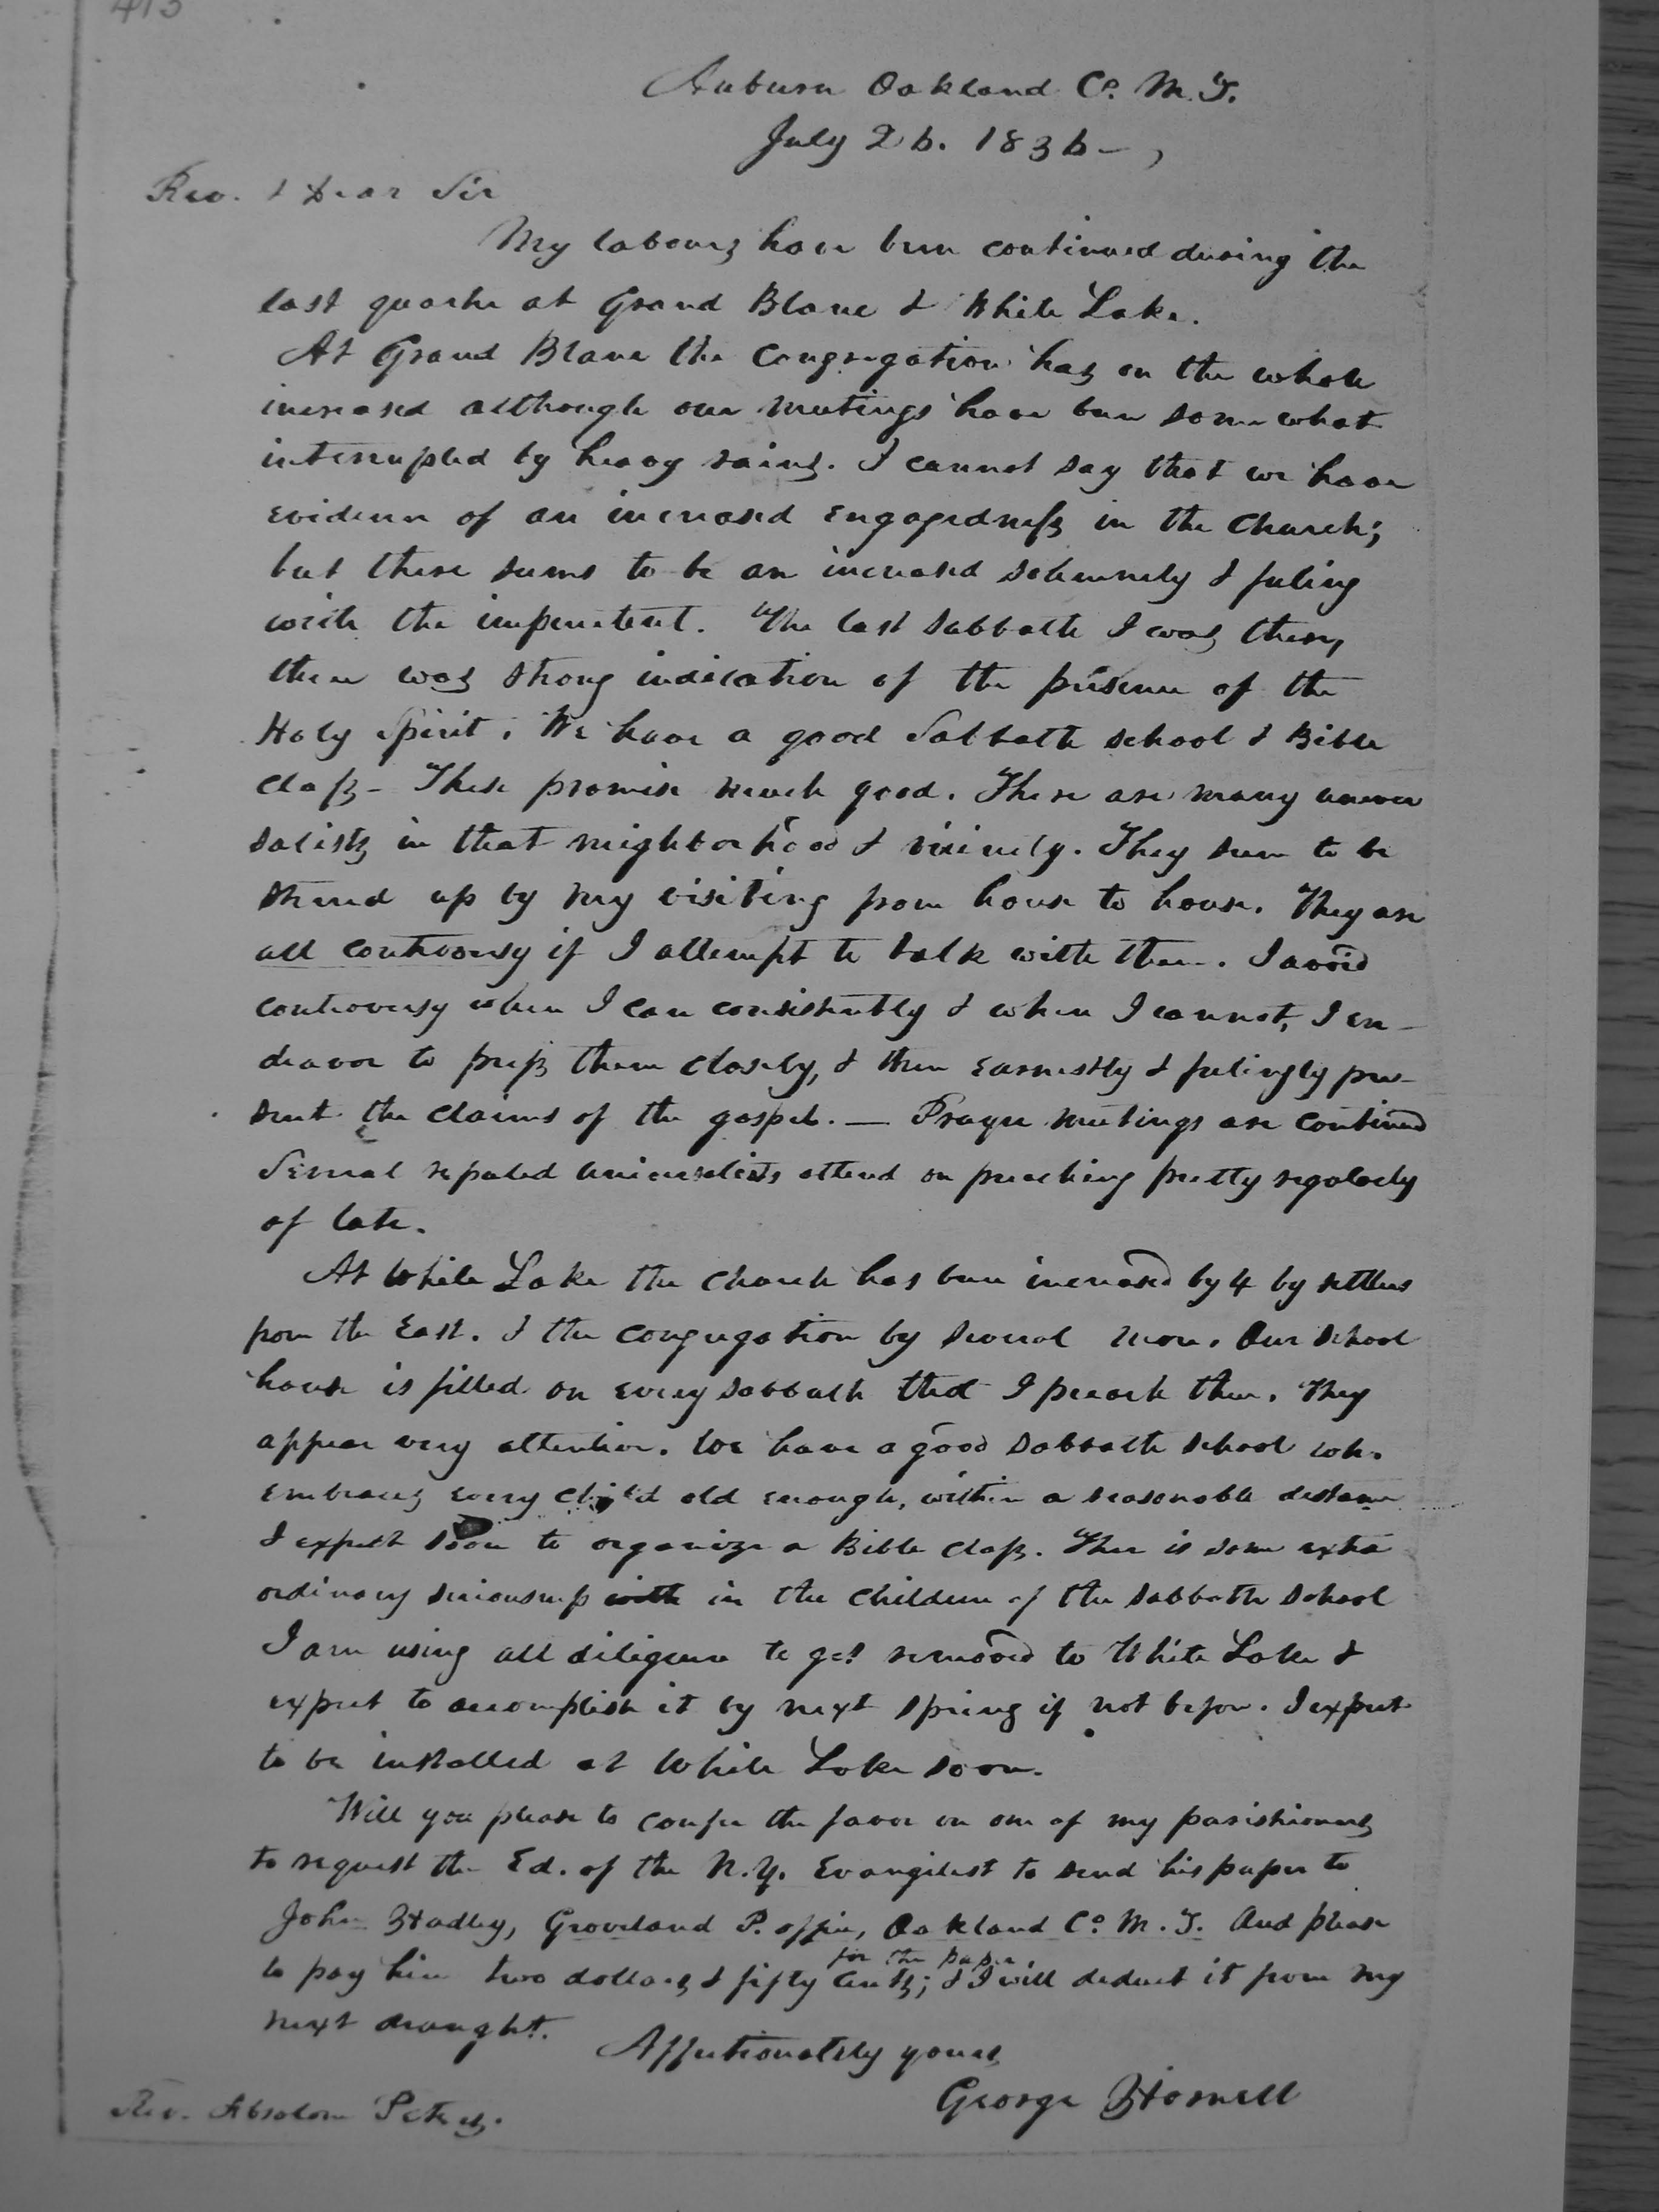 413
Auburn Oakland Co. M. T.
July 26. 1836 — ,
Rev. & Dear Sir
My labours have been continued during the
last quarter at Grand Blanc & White Lake.
At Grand Blanc the Congregation has on the whole
increased although our meetings have been somewhat
interrupted by heavy rains. I cannot say that we have
evidence of an increased engagedness in the church;
but there seems to be an increased solemnity & feeling
with the impenitent. The last Sabbath I was there,
there was strong indication of the presence of the
Holy Spirit. We have a good Sabbath school & Bible
class – These promise much good. There are many univer
salists in that neighborhood & vicinity. They seem to be
stirred up by my visiting from house to house. They are
all controversy if I attempt to talk with them. I avoid
controversy when I can consistently & when I cannot, I en–
deavor to press them closely, & then earnestly & feelingly pre–
sent the claims of the gospel. — Prayer meetings are continued
Several reputed universalists attend on preaching pretty regularly
of late.
At White Lake the church has been increased by 4 by settlers
from the East. & the congregation by several more. Our school
house is filled on every Sabbath that I preach there. They
appear very attentive. We have a good Sabbath school wh.
embraces every child old enough, within a reasonable distance
I expect soon to organize a Bible class. There is some extra
ordinary seriousness with in the children of the Sabbath school
I am using all diligence to get removed to White Lake &
expect to accomplish it by next spring if not before. I expect
to be installed at White Lake soon.
Will you please to confer the favor on one of my parishioners
to request the Ed. of the N.Y. Evangelist to send his paper to
John Hadley, Groveland P. office, Oakland Co. M. T. And please
to pay him two dollars & fifty cents; for the paper & I will deduct it from my
next draught.
Affectionately yours
George Hornell
Rev. Absalom Peters.